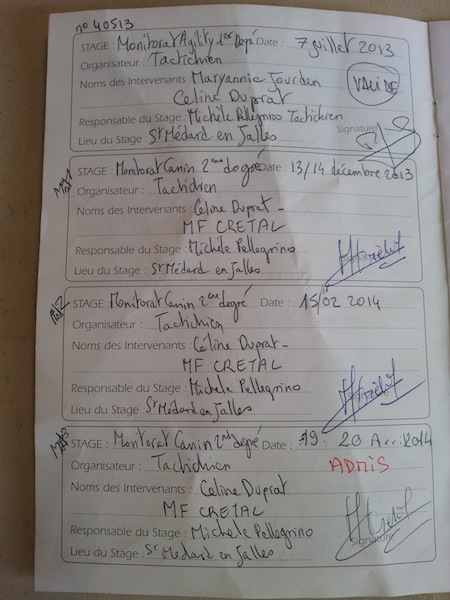 n° 40513
STAGE : Monitorat Agility 1er Degré Date : 7 juillet 2013
Organisateur : Tactichien
Noms des Intervenants Maryannic Jourden
VALIDE
Celine Duprat
Responsable du Stage : Michèle Pellegrino Tachichien
Lieu du Stage : St Médard en Jalles
Signature
STAGE : Monitorat Canin 2ème degré Date : 13/14 décembre 2013
Organisateur : Tactichien
Noms des Intervenants : Céline Duprat -
MF CRETAL
Responsable du Stage : Michèle Pellegrino
Lieu du Stage : St Médard en Jalles
STAGE Monitorat Canin 2ème degré Date : 15/02 2014
Organisateur : Tactichien
Noms des Intervenants : Céline Duprat -
MF CRETAL
Responsable du Stage : Michele Pellegrino
Lieu du Stage : St Médard en Jalles
STAGE : Monitorat Canin 2nd degré Date : 19. 20 Avril 2014
Organisateur : Tachichien ADMIS
Noms des Intervenants : Celine Duprat
MF CRETAL
Responsable du Stage : Michele Pellegrino
Signature
Lieu du Stage : St Médard en Jalles